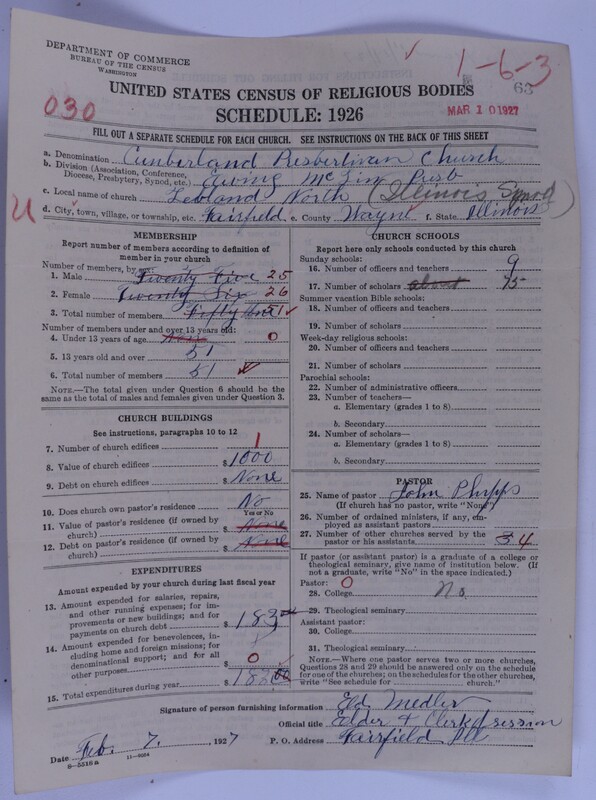 DEPARTMENT OF COMMERCE
BUREAU OF THE CENSUS
WASHINGTON
1-6-3
63
UNITED STATES CENSUS OF RELIGIOUS BODIES
030
SCHEDULE: 1926
MAR 10 1927
FILL OUT A SEPARATE SCHEDULE FOR EACH CHURCH. SEE INSTRUCTIONS ON THE BACK OF THIS SHEET
a. Denomination Cumberland Presbertivan Church
b. Division (Association, Conference, Diocese, Presbytery, Synod, etc.) Ewing McLin Presb
c. Local name of church North (Illinois Synod)
d. City, town, village, or township, etc. Fairfield e. County Wayne f. State Illinois
MEMBERSHIP
Report number of members according to definition of member in your church
Number of members, by sex:
1. Male Twenty Five 25
2. Female Twenty Six 26
3. Total number of members Fifty One 51
Number of members under and over 13 years old:
4. Under 13 years of age None 0
5. 13 years old and over 51
6. Total number of members 51
NOTE.—The total given under Question 6 should be the same as the total of males and females given under Question 3.
CHURCH BUILDINGS
See instructions, paragraphs 10 to 12
7. Number of church edifices 1
8. Value of church edifices $ 1000
9. Debt on church edifices $ None
10. Does church own pastor's residence? No
Yes or No
11. Value of pastor's residence (if owned by church) $ None
12. Debt on pastor's residence (if owned by church) $ None
EXPENDITURES
Amount expended by your church during last fiscal year
13. Amount expended for salaries, repairs, and other running expenses; for improvements or new buildings; and for payments on church debt $ 183
14. Amount expended for benevolences, including home and foreign missions; for denominational support; and for all other purposes $ 0
15. Total expenditures during year $
CHURCH SCHOOLS
Report here only schools conducted by this church
Sunday schools:
16. Number of officers and teachers 9
17. Number of scholars about 75
Summer vacation Bible schools:
18. Number of officers and teachers
19. Number of scholars
Week-day religious schools:
20. Number of officers and teachers
21. Number of scholars
Parochial schools:
22. Number of administrative officers
23. Number of teachers—
a. Elementary (grades 1 to 8)
b. Secondary
24. Number of scholars—
a. Elementary (grades 1 to 8)
b. Secondary
PASTOR
25. Name of pastor John Phipps
(If church has no pastor, write "None")
26. Number of ordained ministers, if any, employed as assistant pastors
27. Number of other churches served by the pastor or his assistants 3 4
If pastor (or assistant pastor) is a graduate of a college or theological seminary, give name of institution below. (If not a graduate, write "No" in the space indicated.)
Pastor: 0
28. College No
29. Theological seminary
Assistant pastor:
30. College
31. Theological seminary
NOTE.—Where one pastor serves two or more churches, Questions 28 and 29 should be answered only on the schedule for one of the churches; on the schedules for the other churches, write "See schedule for church."
Signature of person furnishing information Ed. Medler
Official title Elder & Clerk of session
Date Feb. 7, 1927 P. O. Address Fairfield Ill
8-5518a